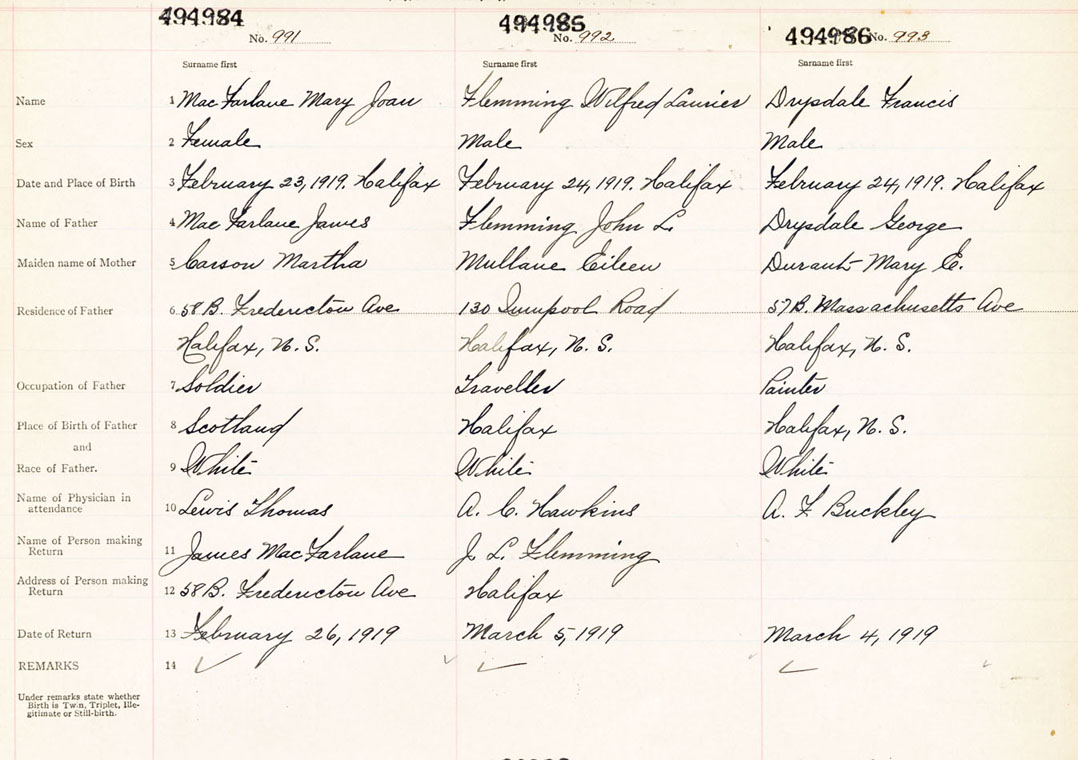 494984 494985 494986
No. 991 No. 992 No. 993
Surname first Surname first Surname first
Name 1 MacFarlane Mary Joan Flemming Wilfred Laurier Drysdale Francis
Sex 2 Female Male Male
Date and Place of Birth 3 February 23, 1919. Halifax February 24, 1919. Halifax February 24, 1919. Halifax
Name of Father 4 MacFarlane James Flemming John L. Drysdale George
Maiden name of Mother 5 Carson Martha Mullane Eileen Durant Mary E.
Residence of Father 6 58 B. Fredericton Ave 130 Quinpool Road 57 B. Massachusetts Ave
Halifax, N. S. Halifax, N. S. Halifax, N. S.
Occupation of Father 7 Soldier Traveller Painter
Place of Birth of Father 8 Scotland Halifax Halifax, N. S.
and
Race of Father. 9 White White White
Name of Physician in
attendance 10 Lewis Thomas A. C. Hawkins A. F Buckley
Name of Person making
Return 11 James MacFarlane J. L. Flemming
Address of Person making
Return 12 58 B. Fredericton Ave Halifax
Date of Return 13 February 26, 1919 March 5, 1919 March 4, 1919
REMARKS 14 ✓ ✓ ✓
Under remarks state whether
Birth is Twin, Triplet, Ille-
gitimate or Still-birth.